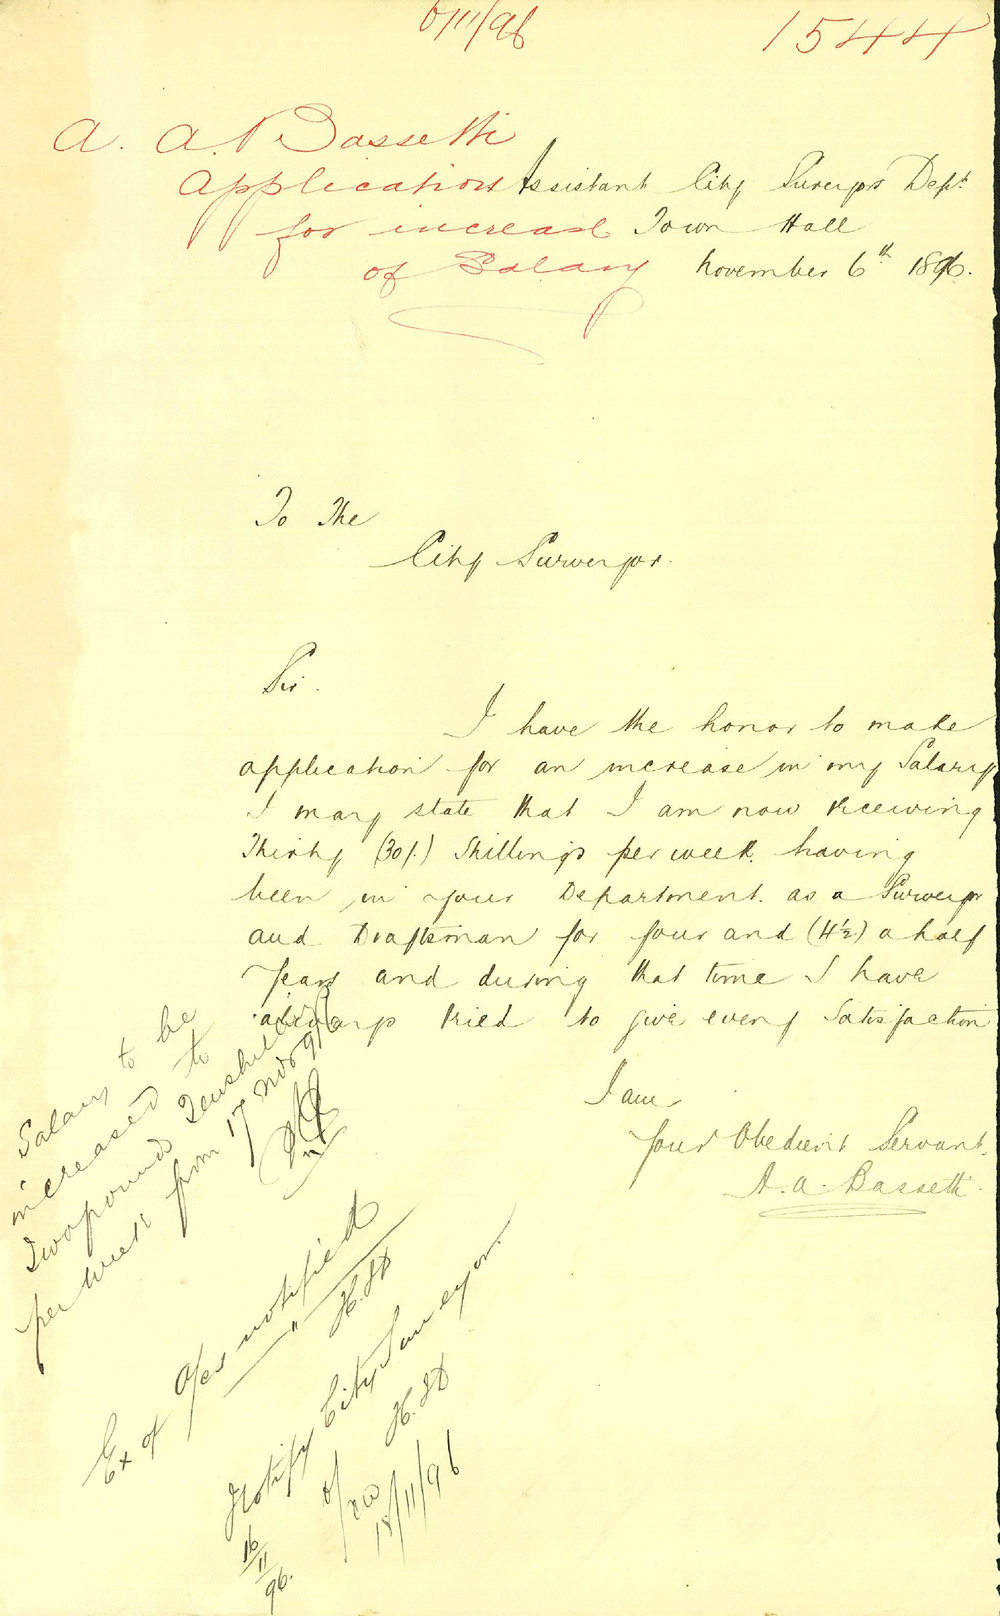 6/11/96
1544
A. A. Bassetti
Application
for increase
of Salary
Assistant City Surveyors Dept
Town Hall
November 6th 1896.
To The
City Surveyor.
Sir.
I have the honor to make
application for an increase in my Salary
I may state that I am now receiving
Thirty (30/.) Shillings per week. having
been in your Department. as a Surveyor
and Draftsman for four and (4½) a half
Years and during that time I have
always tried to give every Satisfaction
I am
Your Obedient Servant.
A. A. Bassetti.
Salary to be
increased to
Two pounds Ten shillings
per week from 17 Nov 96
Ex of Ofes notified
" H.
Notify City Surveyor.
H.
16/11/96.
18/11/96